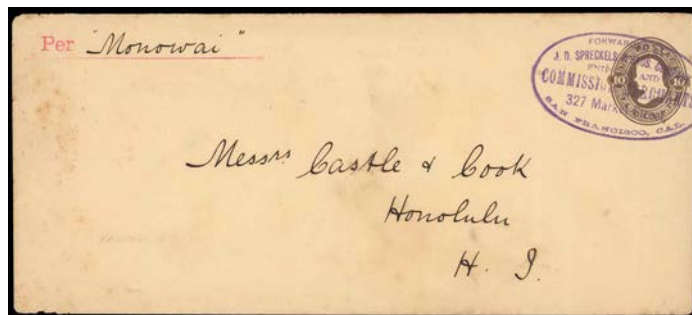 Per "Monowai"
FORWAR
J. D. SPRECKELS
AND
COMMISSI
327 Mark
SAN FRANCISCO, CAL.
10 10
Messrs Castle & Cook
Honolulu
H. I.